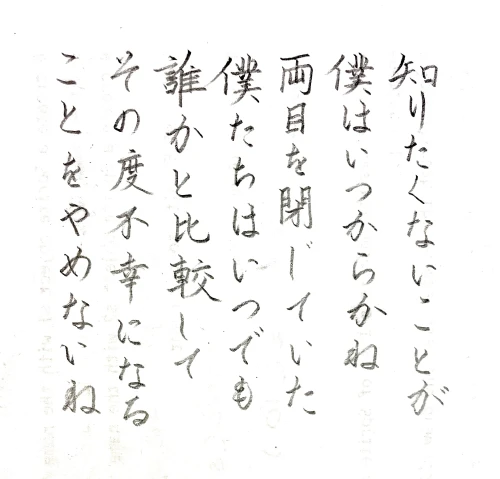 知りたくないことが
僕はいつからかね
両目を閉じていた
僕たちはいつでも
誰かと比較して
その度不幸になる
ことをやめないね